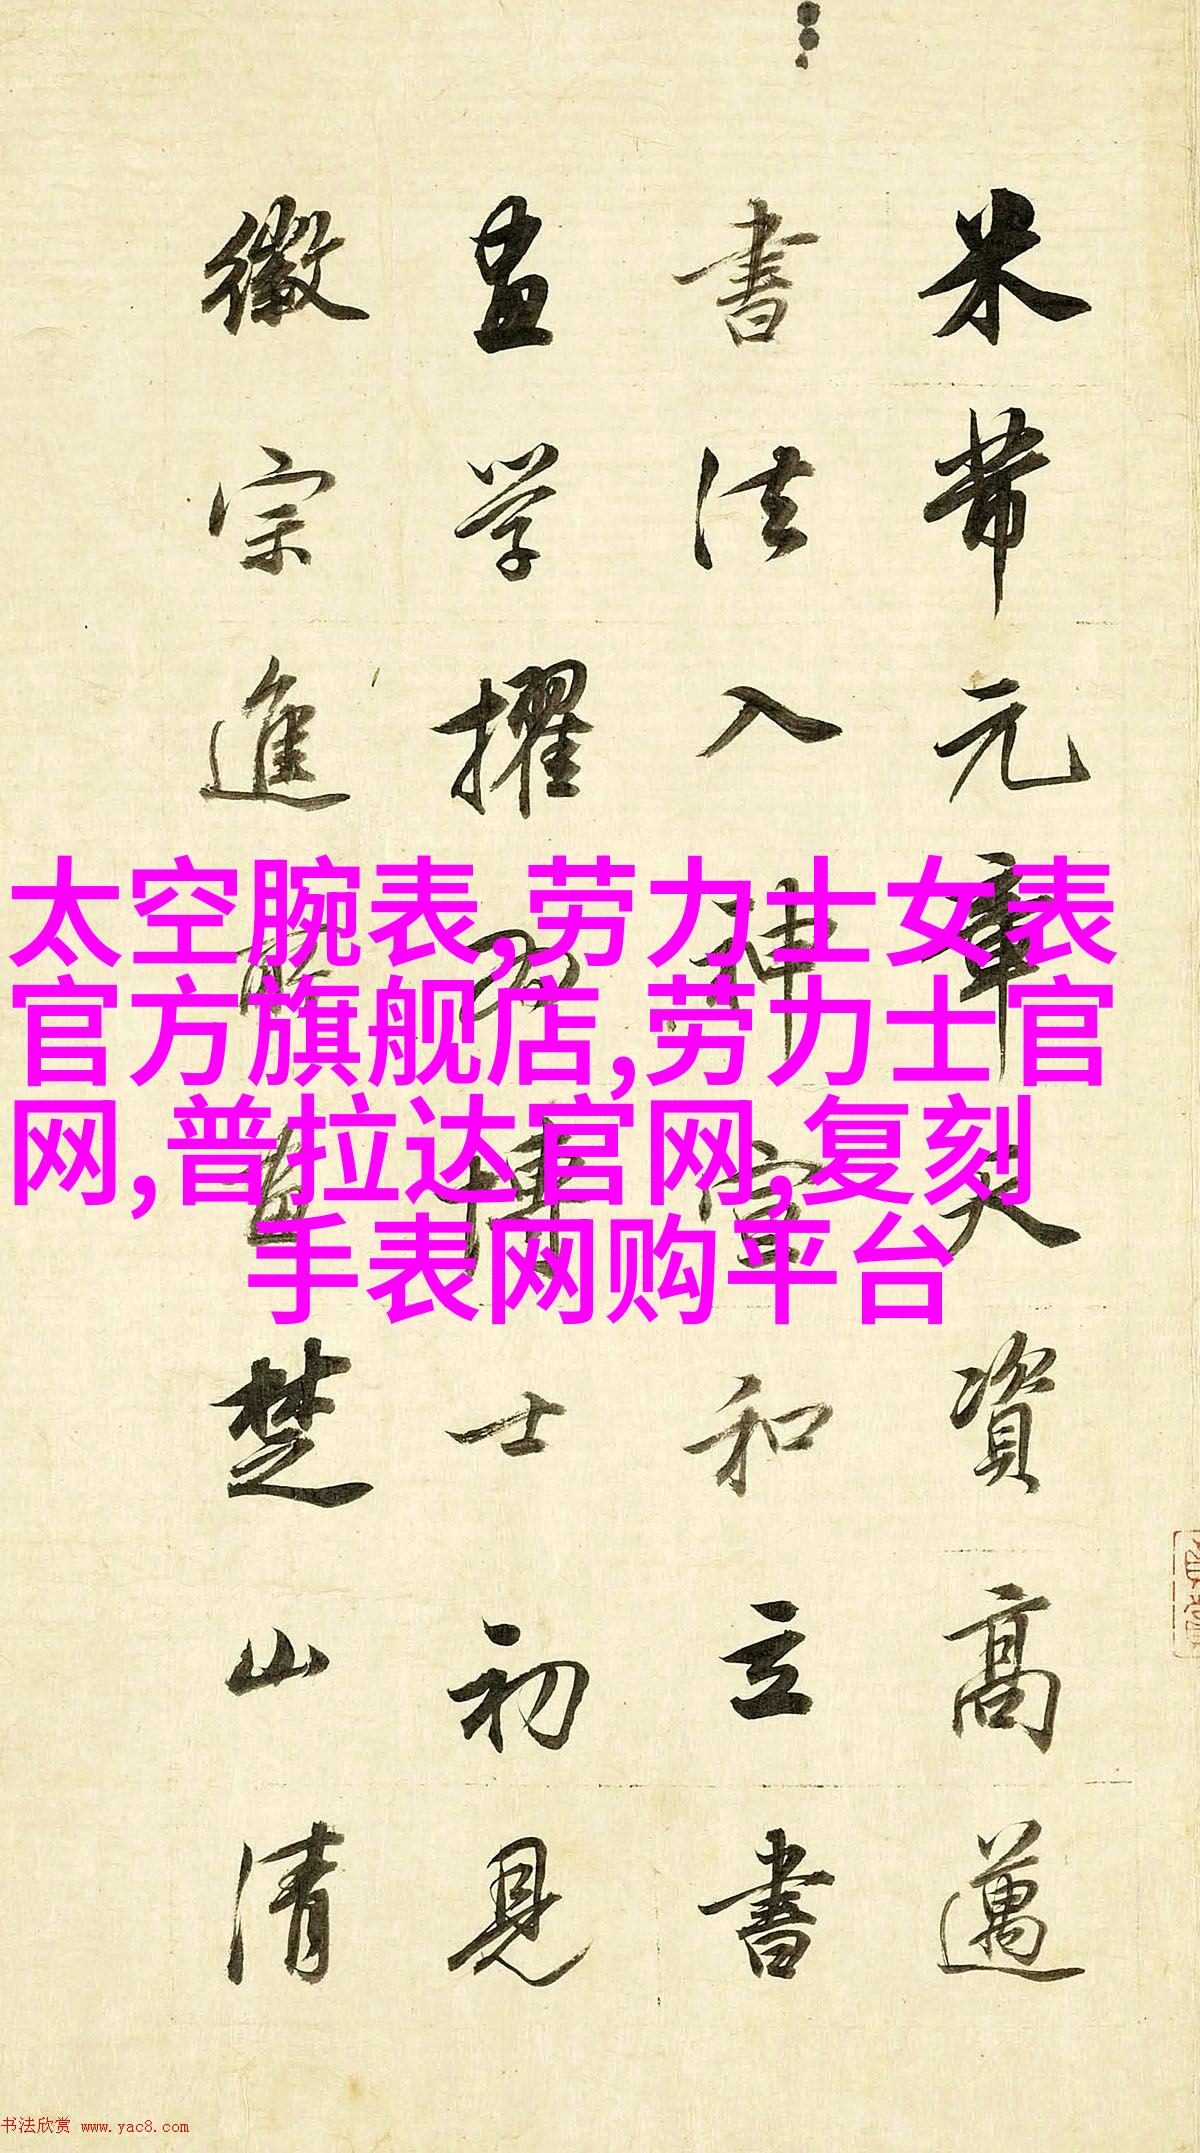 米芾元章天資高邁
書法入神宣和立書
畫學擢為博士初見
徽宗進
楚山清
太空腕表,劳力士女表
官方旗舰店,劳力士官
网,普拉达官网,复刻
手表网购平台
书法欣赏 www.yac8.com